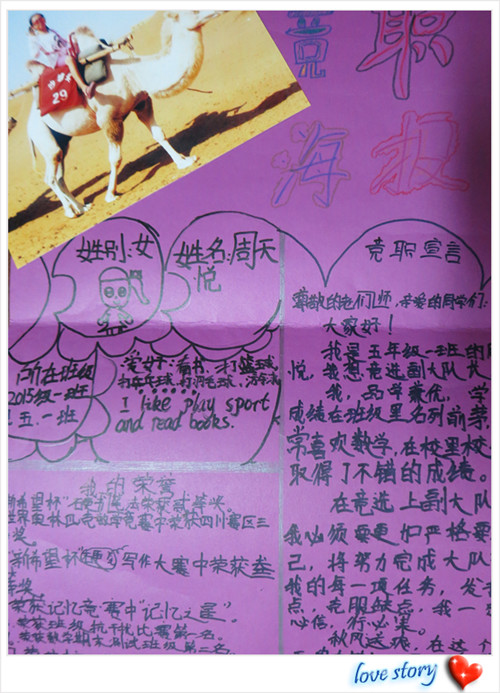 竞职
海报
29
姓别:女
姓名:周天
悦
所在班级
2015级一班
五.一班
爱好:看书、打篮球、
打乒乓球、打羽毛球、
I like play sport
and read books.
竞职宣言
尊敬的老师们,亲爱的同学们:
大家好!
我是五年级一班的周
悦,我想竞选副大队长
我,品学兼优,学
成绩在班级里名列前茅
常喜欢数学,在校里校
取得了不错的成绩。
在竞选上副大队
我必须要更加严格要
己,将努力完成大队
我的每一项任务,发
点,克服缺点,我一
必信,行必果。
秋风送爽,在这个
我的荣誉
奖。
竞赛中荣获四川赛区三
新希望杯"写作大赛中荣获叁
等奖
荣获记忆竞赛中"记忆之星"。
荣获班级抗干扰比赛第一名。
荣获数学期末测试班级第二名。
love story